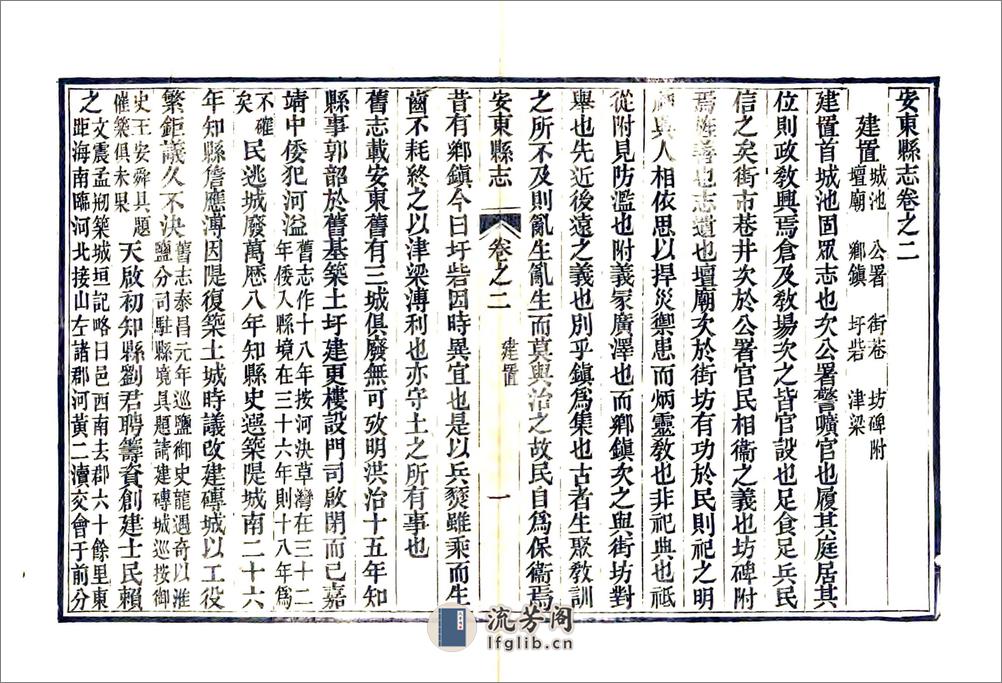 安東縣志卷之二
建置 城池 公署 街巷 坊碑附
壇廟 鄉鎮 圩砦 津梁
建置首城池固眾志也次公署警曠官也履其庭居其
位則政敎興焉倉及敎場次之皆官設也足食足兵民
信之矣街市巷井次於公署官民相衞之義也坊碑附
焉 善也志遺也壇廟次於街坊有功於民則祀之明
與人相依思以捍災禦患而炳靈敎也非祀典也祗
從附見防濫也附義冢廣澤也而鄉鎮次之與街坊對
舉也先近後遠之義也別乎鎮爲集也古者生聚敎訓
之所不及則亂生亂生而莫與治之故民自爲保衞焉
安東縣志 卷之二 建置 一
昔有鄉鎮今曰圩砦因時異宜也是以兵燹雖乘而生
齒不耗終之以津梁溥利也亦守土之所有事也
舊志載安東舊有三城俱廢無可攷明洪治十五年知
縣事郭韶於舊基築土圩建更樓設門司啟閉而已嘉
靖中倭犯河溢 舊志作十八年按河決草灣在三十二
年倭入縣境在三十六年則十八年爲
不確
矣 民逃城廢萬歷八年知縣史選築隄城南二十六
年知縣詹應溥因隄復築土城時議改建磚城以工役
繁鉅議久不決 舊志泰昌元年巡鹽御史龍遇奇以淮
鹽分司駐縣境具題請建磚城巡按御
史王安舜具題
催築俱未果 天啟初知縣劉君聘籌資創建士民賴
之 文震孟剏築城垣記略曰邑西南去郡六十餘里東
距海南臨河北接山左諸郡河黃二瀆交會于前分
流芳阁
lfglib.cn